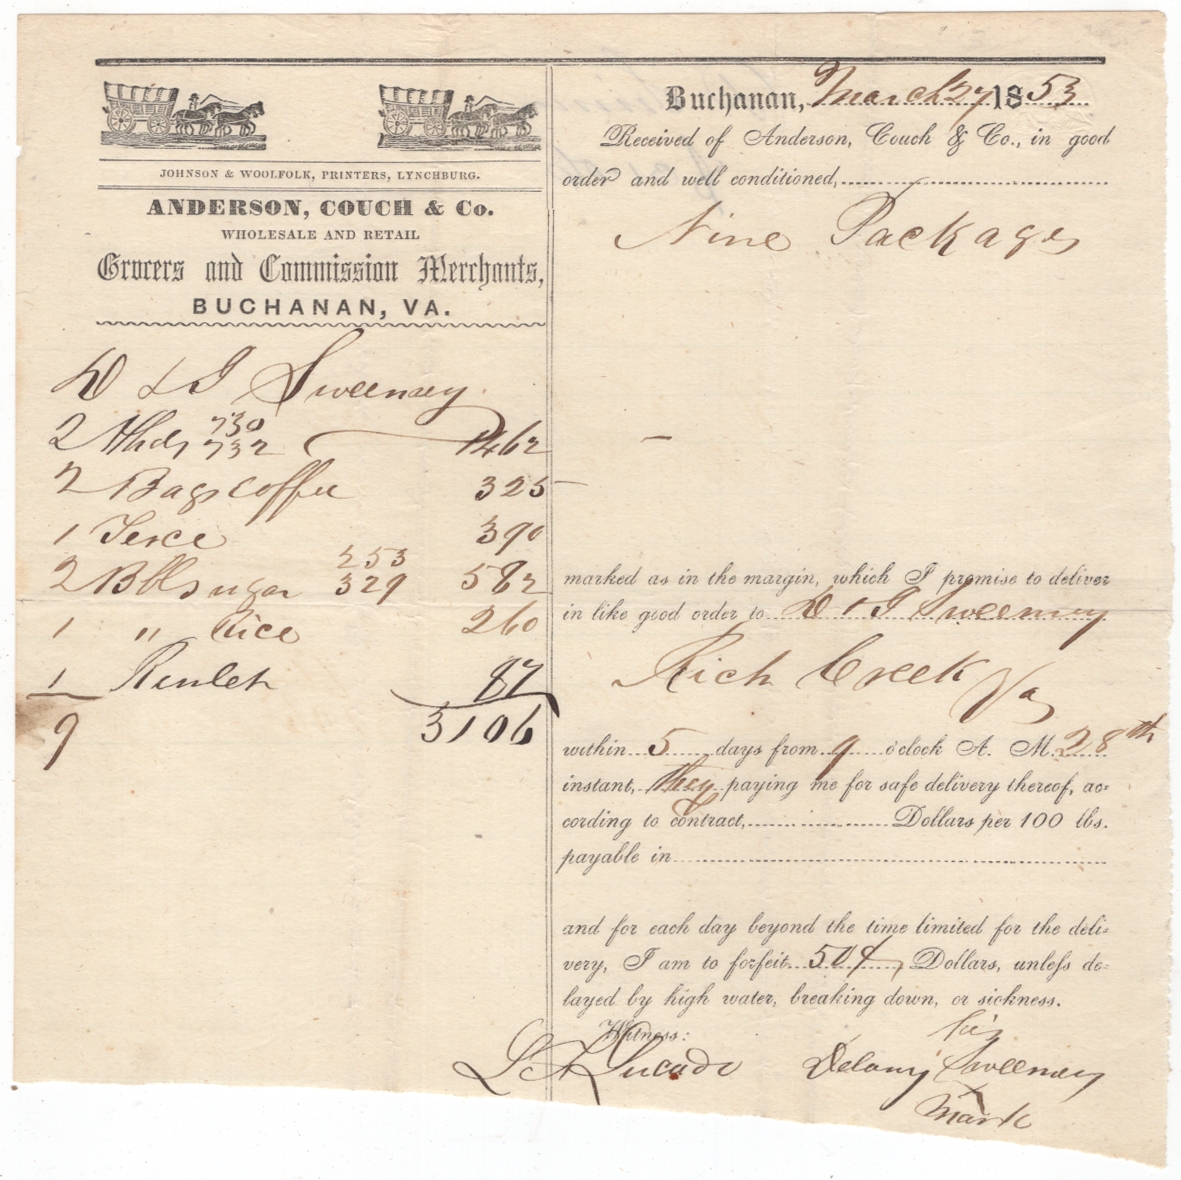 JOHNSON & WOOLFOLK, PRINTERS, LYNCHBURG.
ANDERSON, COUCH & Co.
WHOLESALE AND RETAIL
Grocers and Commission Merchants,
BUCHANAN, VA.
D & G Sweeney
2 Hhds 730
732 1462
2 Bags coffee 325
1 Terce 390
2 Bbl sugar 253
329 582
1 " Rice 260
1 Runlet 87
9 3106
Buchanan, March 27 1853
Received of Anderson, Couch & Co., in good
order and well conditioned,
Nine Packages
marked as in the margin, which I promise to deliver
in like good order to D & G Sweeney
Rich Creek Va
within 5 days from 9 o'clock A. M. 28th
instant, they paying me for safe delivery thereof, ac-
cording to contract, Dollars per 100 lbs.
payable in
and for each day beyond the time limited for the deli-
very, I am to forfeit 50¢ Dollars, unless de-
layed by high water, breaking down, or sickness.
Witness:
his
Delany Sweeney
X
mark